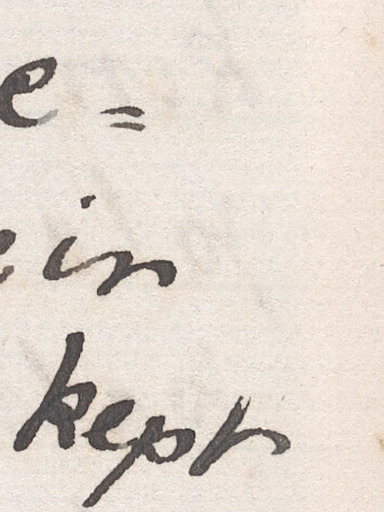 e =
e in
kept